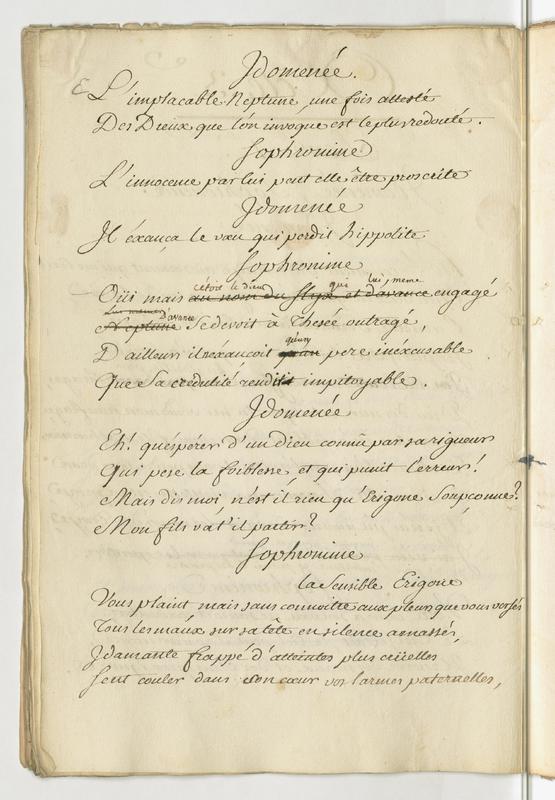 Idomenée.
L'implacable Neptune, une fois attesté
Des Dieux que l'on invoque est le plus redouté.
Sophronime
L'innocence par lui peut elle être proscrite
Idomenée
Il éxauça le vœu qui perdit hippolite
Sophronime
c'étoit le dieu qui lui, meme
Oüi mais au nom du Styx et d'avance engagé
d'avance
Neptune Se devoit à Thesée outragé,
qu'un
D'ailleurs il n'éxauçoit pere inéxcusable
Que Sa crédulité rendit impitoyable.
Idomenée
Eh! qu'espérer d'un dieu connû par sa rigueur
Qui pese la foiblesse, et qui punit l'erreur!
Mais dis moi, n'est il rien qu'Erigone Soupçonne?
Mon fils va t'il partir?
Sophronime
la Sensible Erigone
Vous plaint mais sans connoitre aux pleurs que vous versés
Tous les maux sur sa tête en silence amassés,
Idamante frappé d'atteintes plus crüelles
Sent couler dans son cœur vos larmes paternelles,